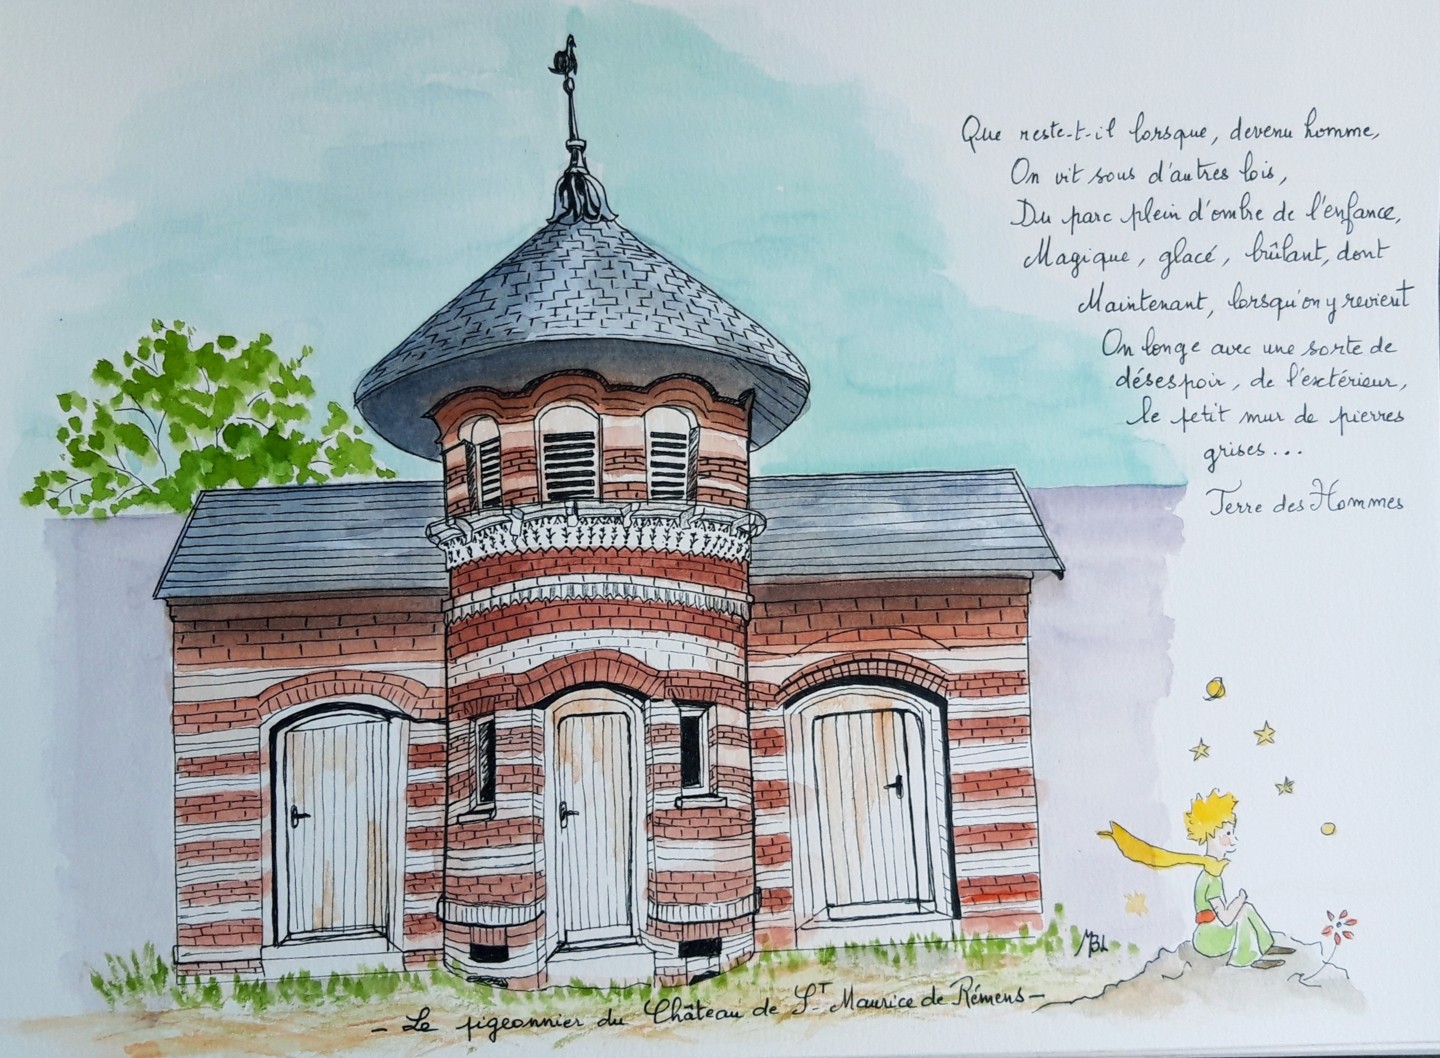 Que reste-t-il lorsque, devenu homme,
On vit sous d'autres lois,
Du parc plein d'ombre de l'enfance,
Magique, glacé, brûlant, dont
Maintenant, lorsqu'on y revient
On longe avec une sorte de
désespoir, de l'extérieur,
le petit mur de pierres
grises...
Terre des Hommes
MBL
- Le pigeonnier du Château de S^T Maurice de Rémens -